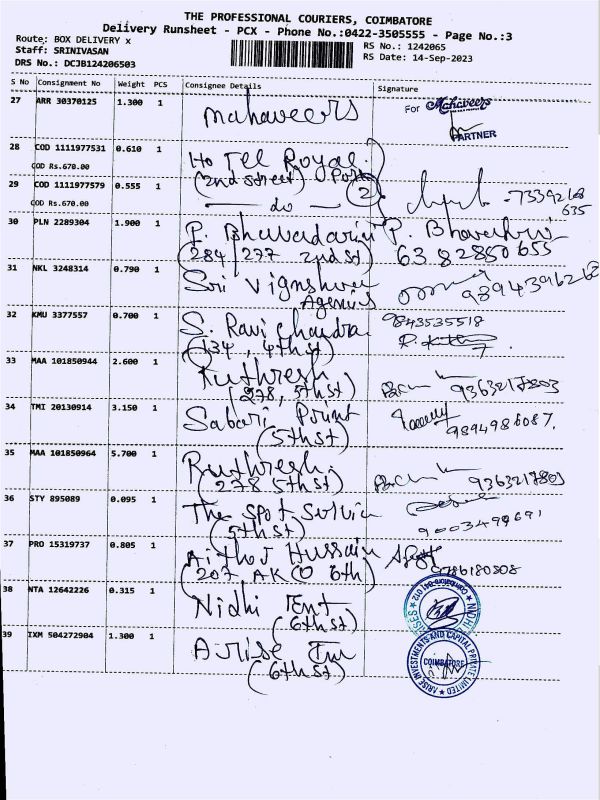 THE PROFESSIONAL COURIERS, COIMBATORE
Delivery Runsheet - PCX - Phone No.:0422-3505555 - Page No.:3
Route: BOX DELIVERY x
RS No.: 1242065
Staff: SRINIVASAN
RS Date: 14-Sep-2023
DRS No.: DCJB124206503
S No Consignment No Weight PCS Consignee Details Signature
27 ARR 30370125 1.300 1 Mahaveers For Mahaveers
PARTNER
28 COD 1111977531 0.610 1 Hotel Royal
COD Rs.670.00 (2nd street)
29 COD 1111977579 0.555 1 — do — 2 73392168
COD Rs.670.00 635
30 PLN 2289304 1.900 1 P. Bhavadarini P.
(284/277 2nd st) 63 82850655
31 NKL 3248314 0.790 1 Sri Vignshwer
Agencies 9894396268
32 KMU 3377557 0.700 1 S. Ravi Chandra 9843535518
(134, 4th st)
33 MAA 101850944 2.600 1 Ruthresh
(278, 5th st) 9363217803
34 TMI 20130914 3.150 1 Sabari Print
(5th st) 9894986087.
35 MAA 101850964 5.700 1 Ruthresh.
(278 5th st) 9363217803
36 STY 895089 0.095 1 The Spot
(5th st) 9003499691
37 PRO 15319737 0.805 1 Hussain
(207 AK 6th) 9786180508
38 NTA 12642226 0.315 1 Nidhi Ent
(6th st)
39 IXM 504272904 1.300 1 Arise
(6th st)
ARISE INVESTMENTS AND CAPITAL PRIVATE LIMITED
COIMBATORE